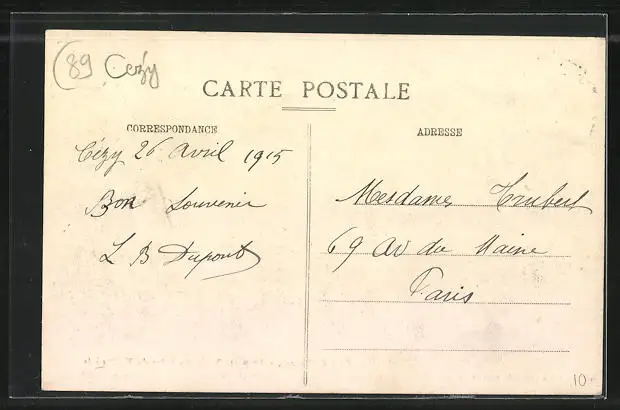 (89 Cezy
CARTE POSTALE
CORRESPONDANCE
ADRESSE
Cézy 26 Avril 1915
Bon Souvenir
L B Dupont
Mesdames
69 Av du Maine
Paris
10